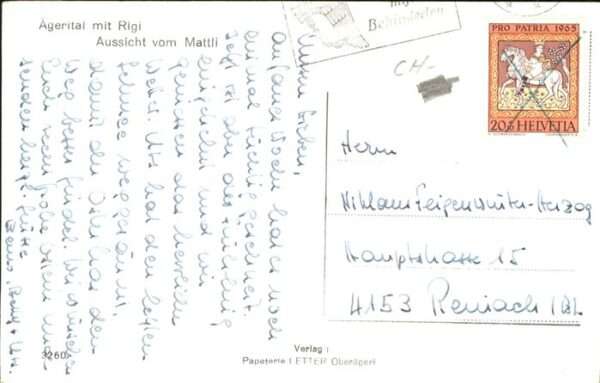 Ägerital mit Rigi
Aussicht vom Mattli
mit
Behinderten
PRO PATRIA 1965
20+10 HELVETIA
CH-
Unsere Lieben,
Anfang Woche hat es noch
einmal tüchtig geschneit.
Jetzt ist aber der Frühling
eingekehrt und wir
geniessen das
Wetter. Urs hat den letzten
Schnee weggeräumt,
damit der Osterhas den
Weg besser findet. Wir wünschen
Euch recht frohe Ostern und
senden herzl. Grüsse
Herrn
Niklaus Feigenwinter-Herzog
Hauptstrasse 15
4153 Reinach/BL
3260
Verlag:
Papeterie LETTER Oberägeri